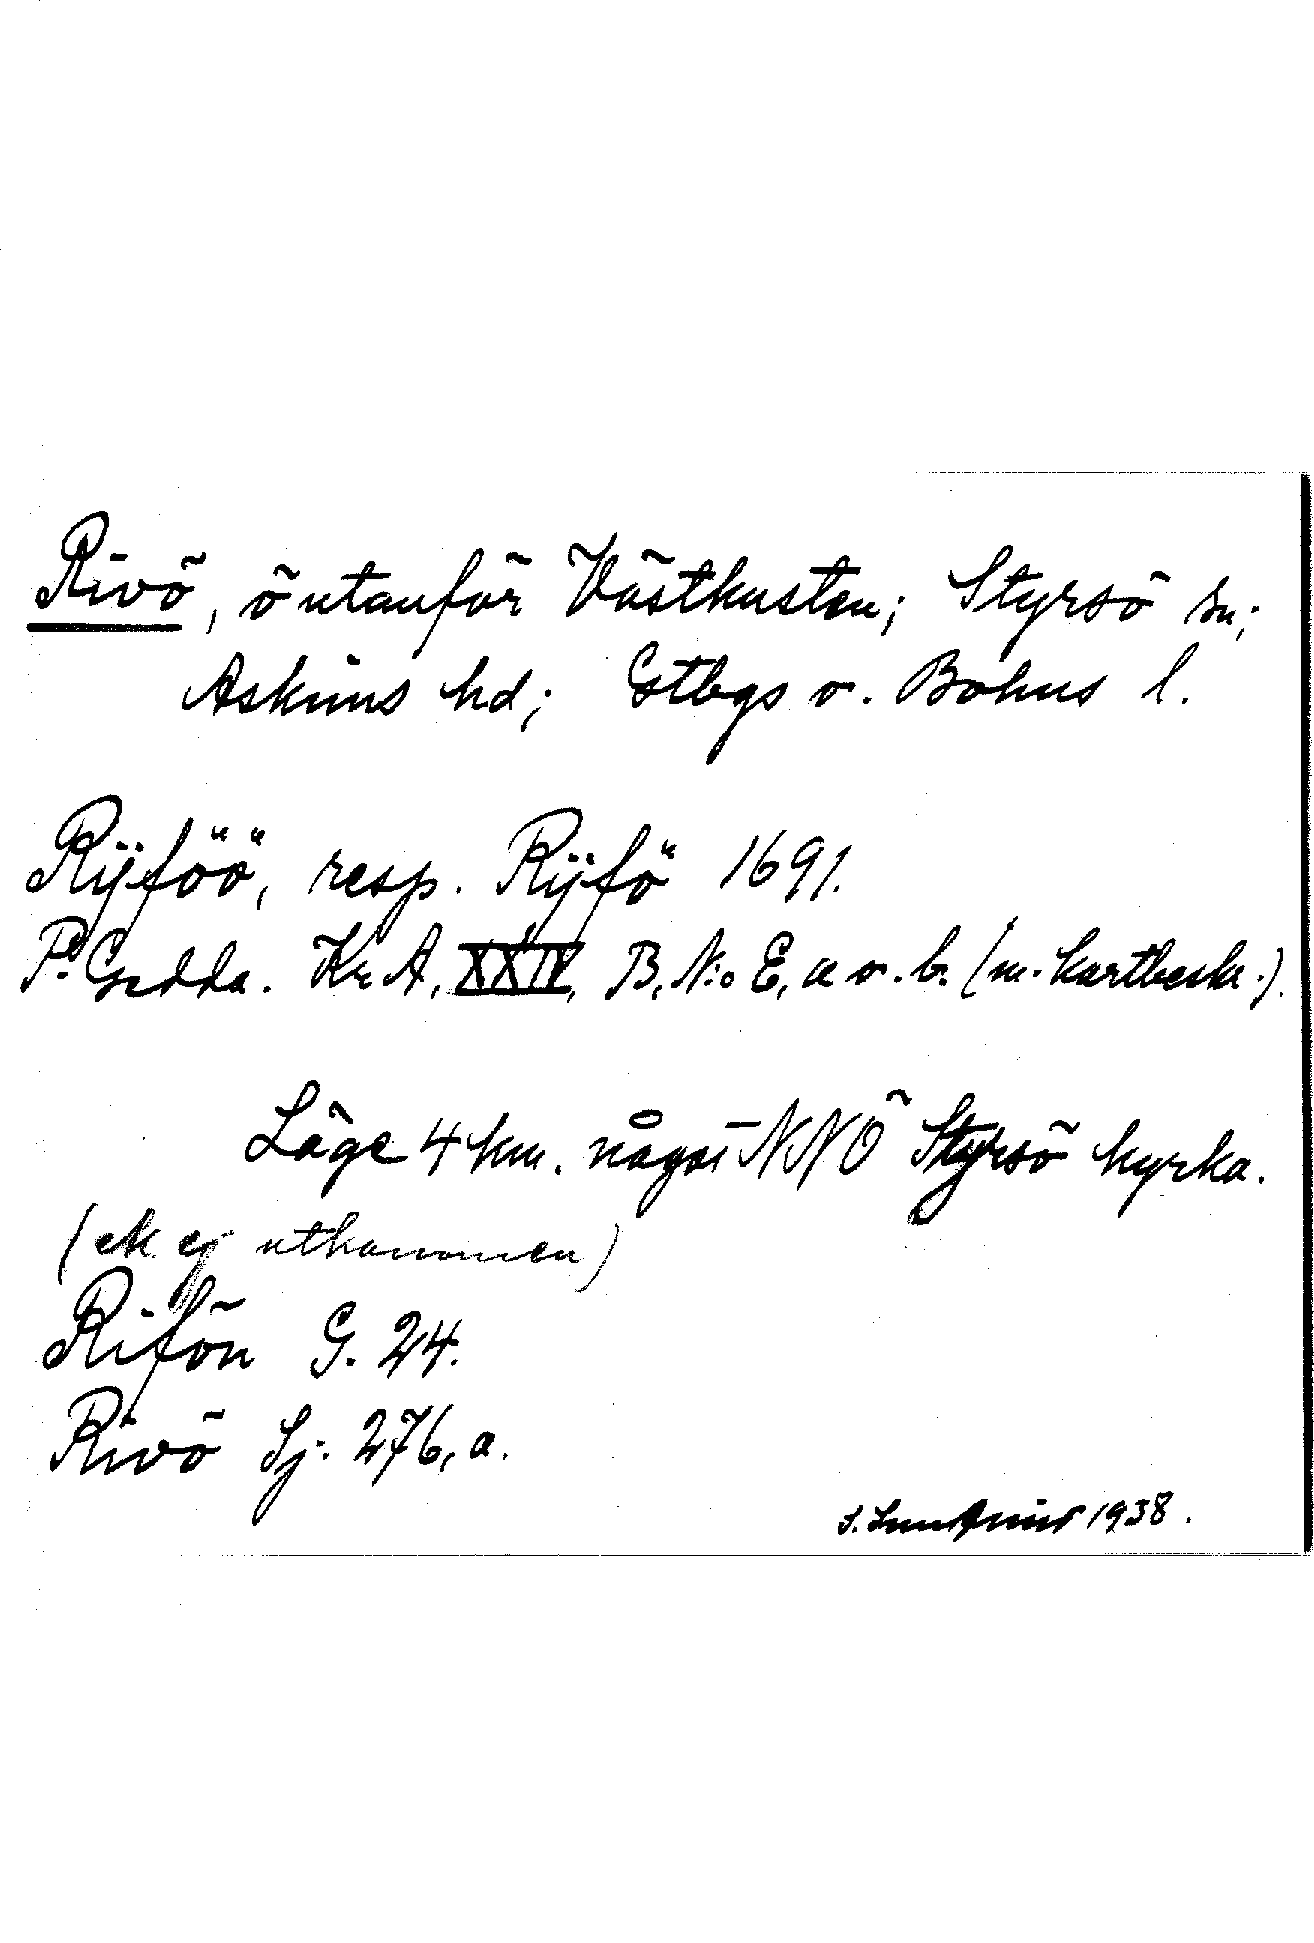 Rivö, ö utanför Västkusten; Styrsö sn;
Askims hd; Gtbgs o. Bohus l.
Rÿföö, resp. Rÿfö 1691.
Pr Gedda. Kr A, XXIV, B, N:o E, a o. b. (m. kartbeskr.).
Läge 4 km. något NNÖ Styrsö kyrka.
(ek ej utkommen)
Rifön G. 24.
Rivö Sj. 276, a.
1938.